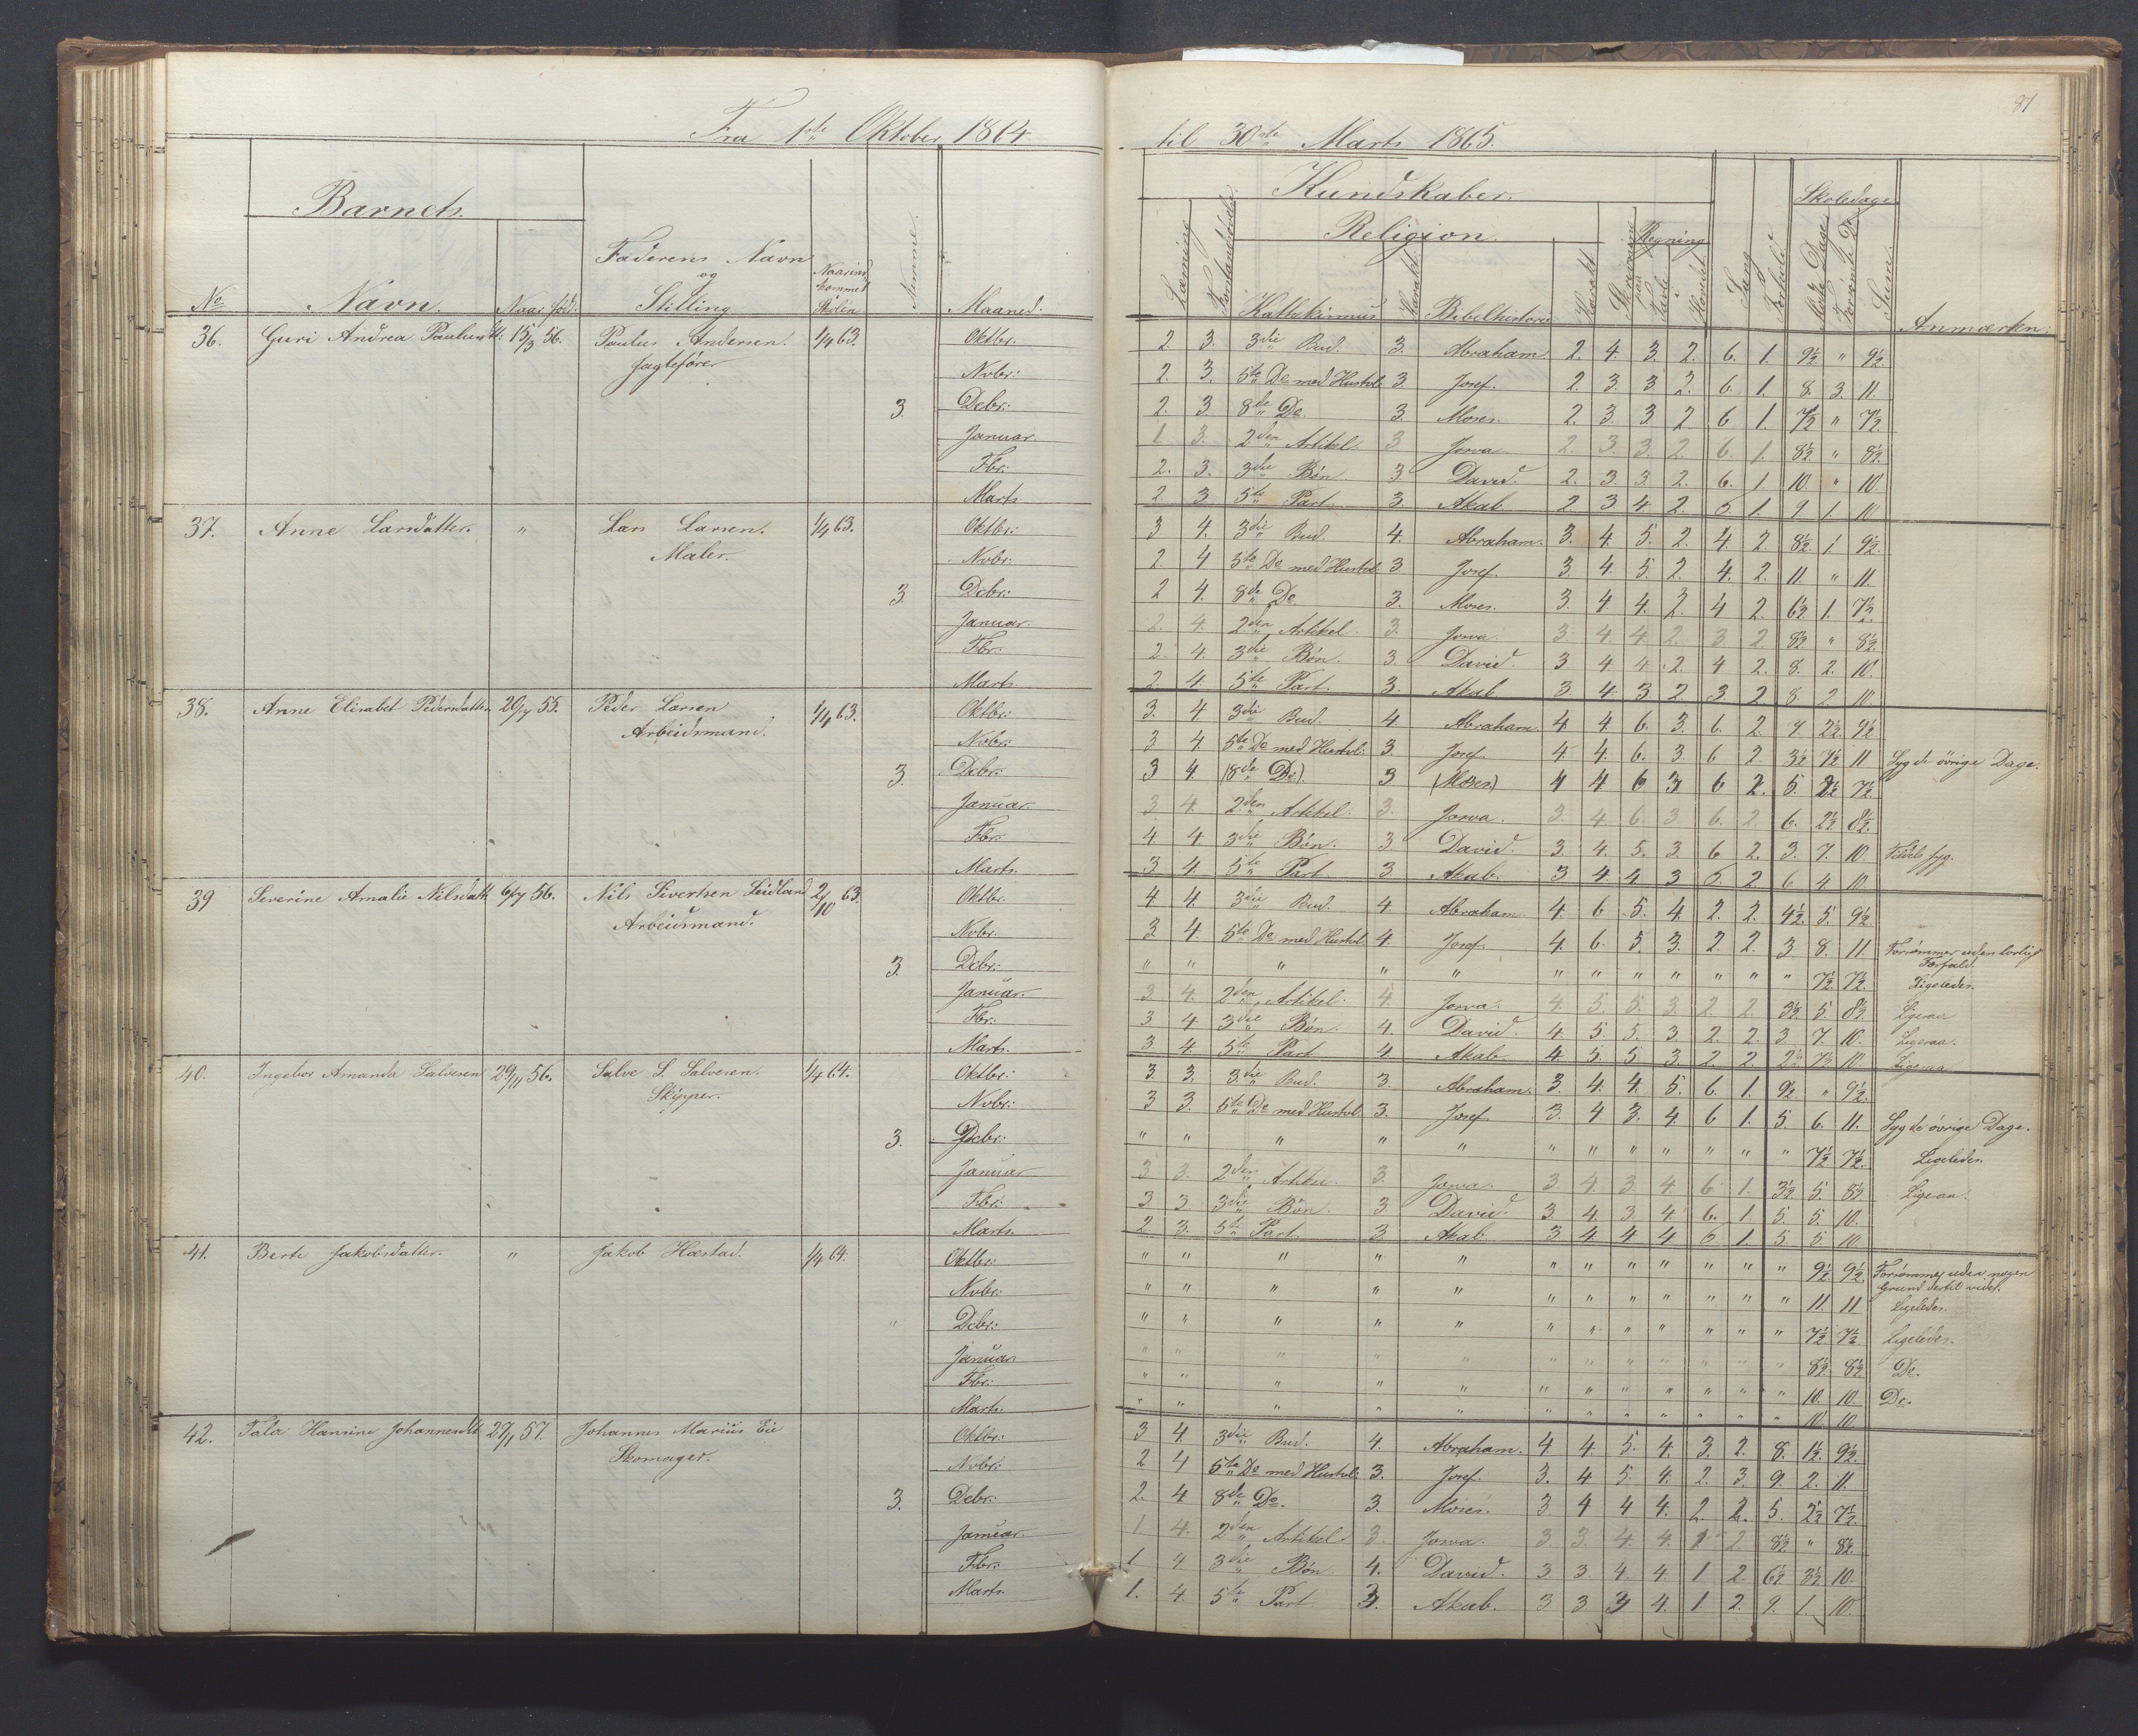 Fra 1ste Oktober 1864
Barnets
No Navn. Naar föd. Faderens Navn og Stilling Naar indkommet i Skolen Nemme. Maaned.
36. Guri Andrea Paulusdt: 15/3 56. Paulus Andersen. 1/4 63. Oktbr:
Jagtefører Nvbr:
3. Dcbr:
Januar.
Fbr:
Marts.
37. Anne Larsdatter. " Lars Larsen. 1/4 63. Oktbr:
Maler. Nvbr:
3. Dcbr:
Januar.
Fbr:
Marts.
38. Anne Elisabet Pedersdatter Peder Larsen 1/4 63. Oktbr:
Arbeidsmand. Nvbr:
3. Dcbr:
Januar.
Fbr:
Marts.
39 Severine Amalie Nilsdatt 56. Nils Sivertsen Leidland 2/10 63. Oktbr.
Arbeidsmand. Nvbr.
3. Dcbr:
Januar.
Fbr:
Marts.
40. Ingebor Amanda Salvesen 29/11 56. Salve S. Salvesen. 1/4 64. Oktbr:
Skipper. Nvbr:
3. Dcbr:
Januar
Fbr:
Marts
41. Berte Jakobsdatter. " Jakob Hæstad. 1/4 64. Oktbr:
Nvbr:
" Dcbr:
Januar
Fbr:
Marts.
42. Tala Hansine Johannesdt 27/1 57. Johannes Marius Eie Oktbr:
Skomager. Nvbr:
3. Dcbr:
Januar.
Fbr:
Marts.
81
til 30te Marts 1865.
Kundskaber. Skoledage
Religion. Regning
Læsning Forstandsøvelse Kattekismus Karakt. Bibelhistorie Karakt Skrivning paa Tavle Hovedet Sang Forhold Mødte Dage Forsømte Do Sum. Anmærkn:
2. 3. 3die Bud. 3. Abraham. 2. 4. 3. 2. 6. 1. 9½ " 9½.
2. 3. 5te Do med Hustvl 3. Josef. 2. 3. 3. 2. 6. 1. 8. 3. 11.
2. 3. 8de Do. 3. Moses. 2. 3. 3. 2 6 1. 7½ " 7½.
1. 3. 2den Artikel 3 Josva 2. 3. 3. 2. 6. 1. 8½ " 8½.
2. 3. 3die Bön. 3. David. 2. 3. 3. 2. 6. 1. 10. " 10.
2. 3. 5te Part. 3. Akab. 2 3 4 2. 5 1 9 1. 10
3 4. 3die Bud. 4. Abraham. 3. 4. 5. 2. 4. 2. 8½ 1. 9½.
2. 4 5te Do med Hustvl. 3. Josef. 3. 4. 5. 2. 4. 2. 11. " 11.
2 4. 8de Do 3. Moses. 3. 4. 4. 2. 4 2. 6½ 1. 7½.
2. 4. 2den Artikel. 3. Josva. 3. 4. 4 2. 3 2 8½ " 8½.
2. 4. 3die Bön. 3. David. 3 4 4. 2 4 2. 8. 2. 10.
2. 4. 5te Part. 3. Akab 3. 4. 3 2 3 2 8 2 10.
3. 4 3die Bud. 4. Abraham 4 4 6. 3. 6. 2. 7. 2½. 9½
3 4. 5te Do med Hustvl. 3. Josef. 4. 4. 6. 3. 6 2. 3½ 7½ 11 Syg de övrige Dage.
3 4 (8de Do). 3 (Moses) 4 4 6 3 6 2. 5. 2½ 7½.
3 4. 2den Artikel. 3. Josva. 3. 4 6 3 6. 2. 6. 2½. 8½.
4 4 3die Bön. 3. David. 3. 4. 5. 3. 6 2. 3. 7. 10. syg.
3 4. 5te Part. 3 Akab. 3 4 4 3 5 2 6 4 10.
4 4. 3die Bud. 4. Abraham 4. 6. 5. 4. 2. 2. 4½. 5. 9½
3 4. 5te Do med Hustvl. 4. Josef. 4. 6. 5. 3. 2. 2. 3 8. 11. Forsømmer uden lovligt Forfald.
" " " " " " " " " " " " 7½. 7½. Ligeledes.
3 4. 2den Artikel. 4. Josva. 4. 5. 5. 3. 2 2. 3½. 5. 8½. Ligesaa
3 4 3die Bön. 4. David. 4 5. 5. 3 2. 2. 3 7. 10. Ligesaa.
3. 4. 5te Part 4. Akab 4. 5. 5. 3 2. 2. 2½ 7½ 10 Ligesaa
3. 3. 3die Bud. 3. Abraham. 3. 4. 4. 5. 6. 1. 9½ " 9½.
3 3. 5te Do med Hustvl 3. Josef. 3. 4 3. 4. 6 1. 5. 6. 11. Syg de övrige Dage.
" " " " " " " " " " " " 7½ 7½. Ligeledes.
3 3. 2den Artikel. 3. Josva. 3. 4. 3. 4 6. 1. 3½. 5. 8½ Ligesaa.
3 3 3die Bön. 3 David. 3 4. 3. 4. 6. 1. 5 5. 10.
2 3. 5te Part. 3. Akab. 3 4 4 4 5 1. 5 5. 10.
" " " " " " " " " " " " 9½ 9½. Forsømmer uden nogen Grund dertil vides.
" " " " " " " " " " " " 11. 11 Ligeledes.
" " " " " " " " " " " " 7½. 7½ Ligeledes.
" " " " " " " " " " " " 8½. 8½ Do.
" " " " " " " " " " " " 10. 10. Do.
" " " " " " " " " " " " 10. 10.
3 4 3die Bud. 4. Abraham. 4 4. 5. 4. 3. 2. 8. 1½. 9½.
2 4 5te Do med Hustvl. 3. Josef. 3. 4 5. 4. 2. 3. 9. 2. 11.
2. 4 8de Do. 3. Moses. 3 4 4 4. 2. 2. 5. 2½ 7½.
1 4. 2den Artikel. 3. Josva. 3 3. 4. 4. 1 2 8½ " 8½.
1 4 3die Bön 4. David. 3 3. 4. 4 1 2 6½ 3½. 10.
1. 4. 5te Part 3. Akab. 3 3 3 4. 1 2. 9. 1. 10.